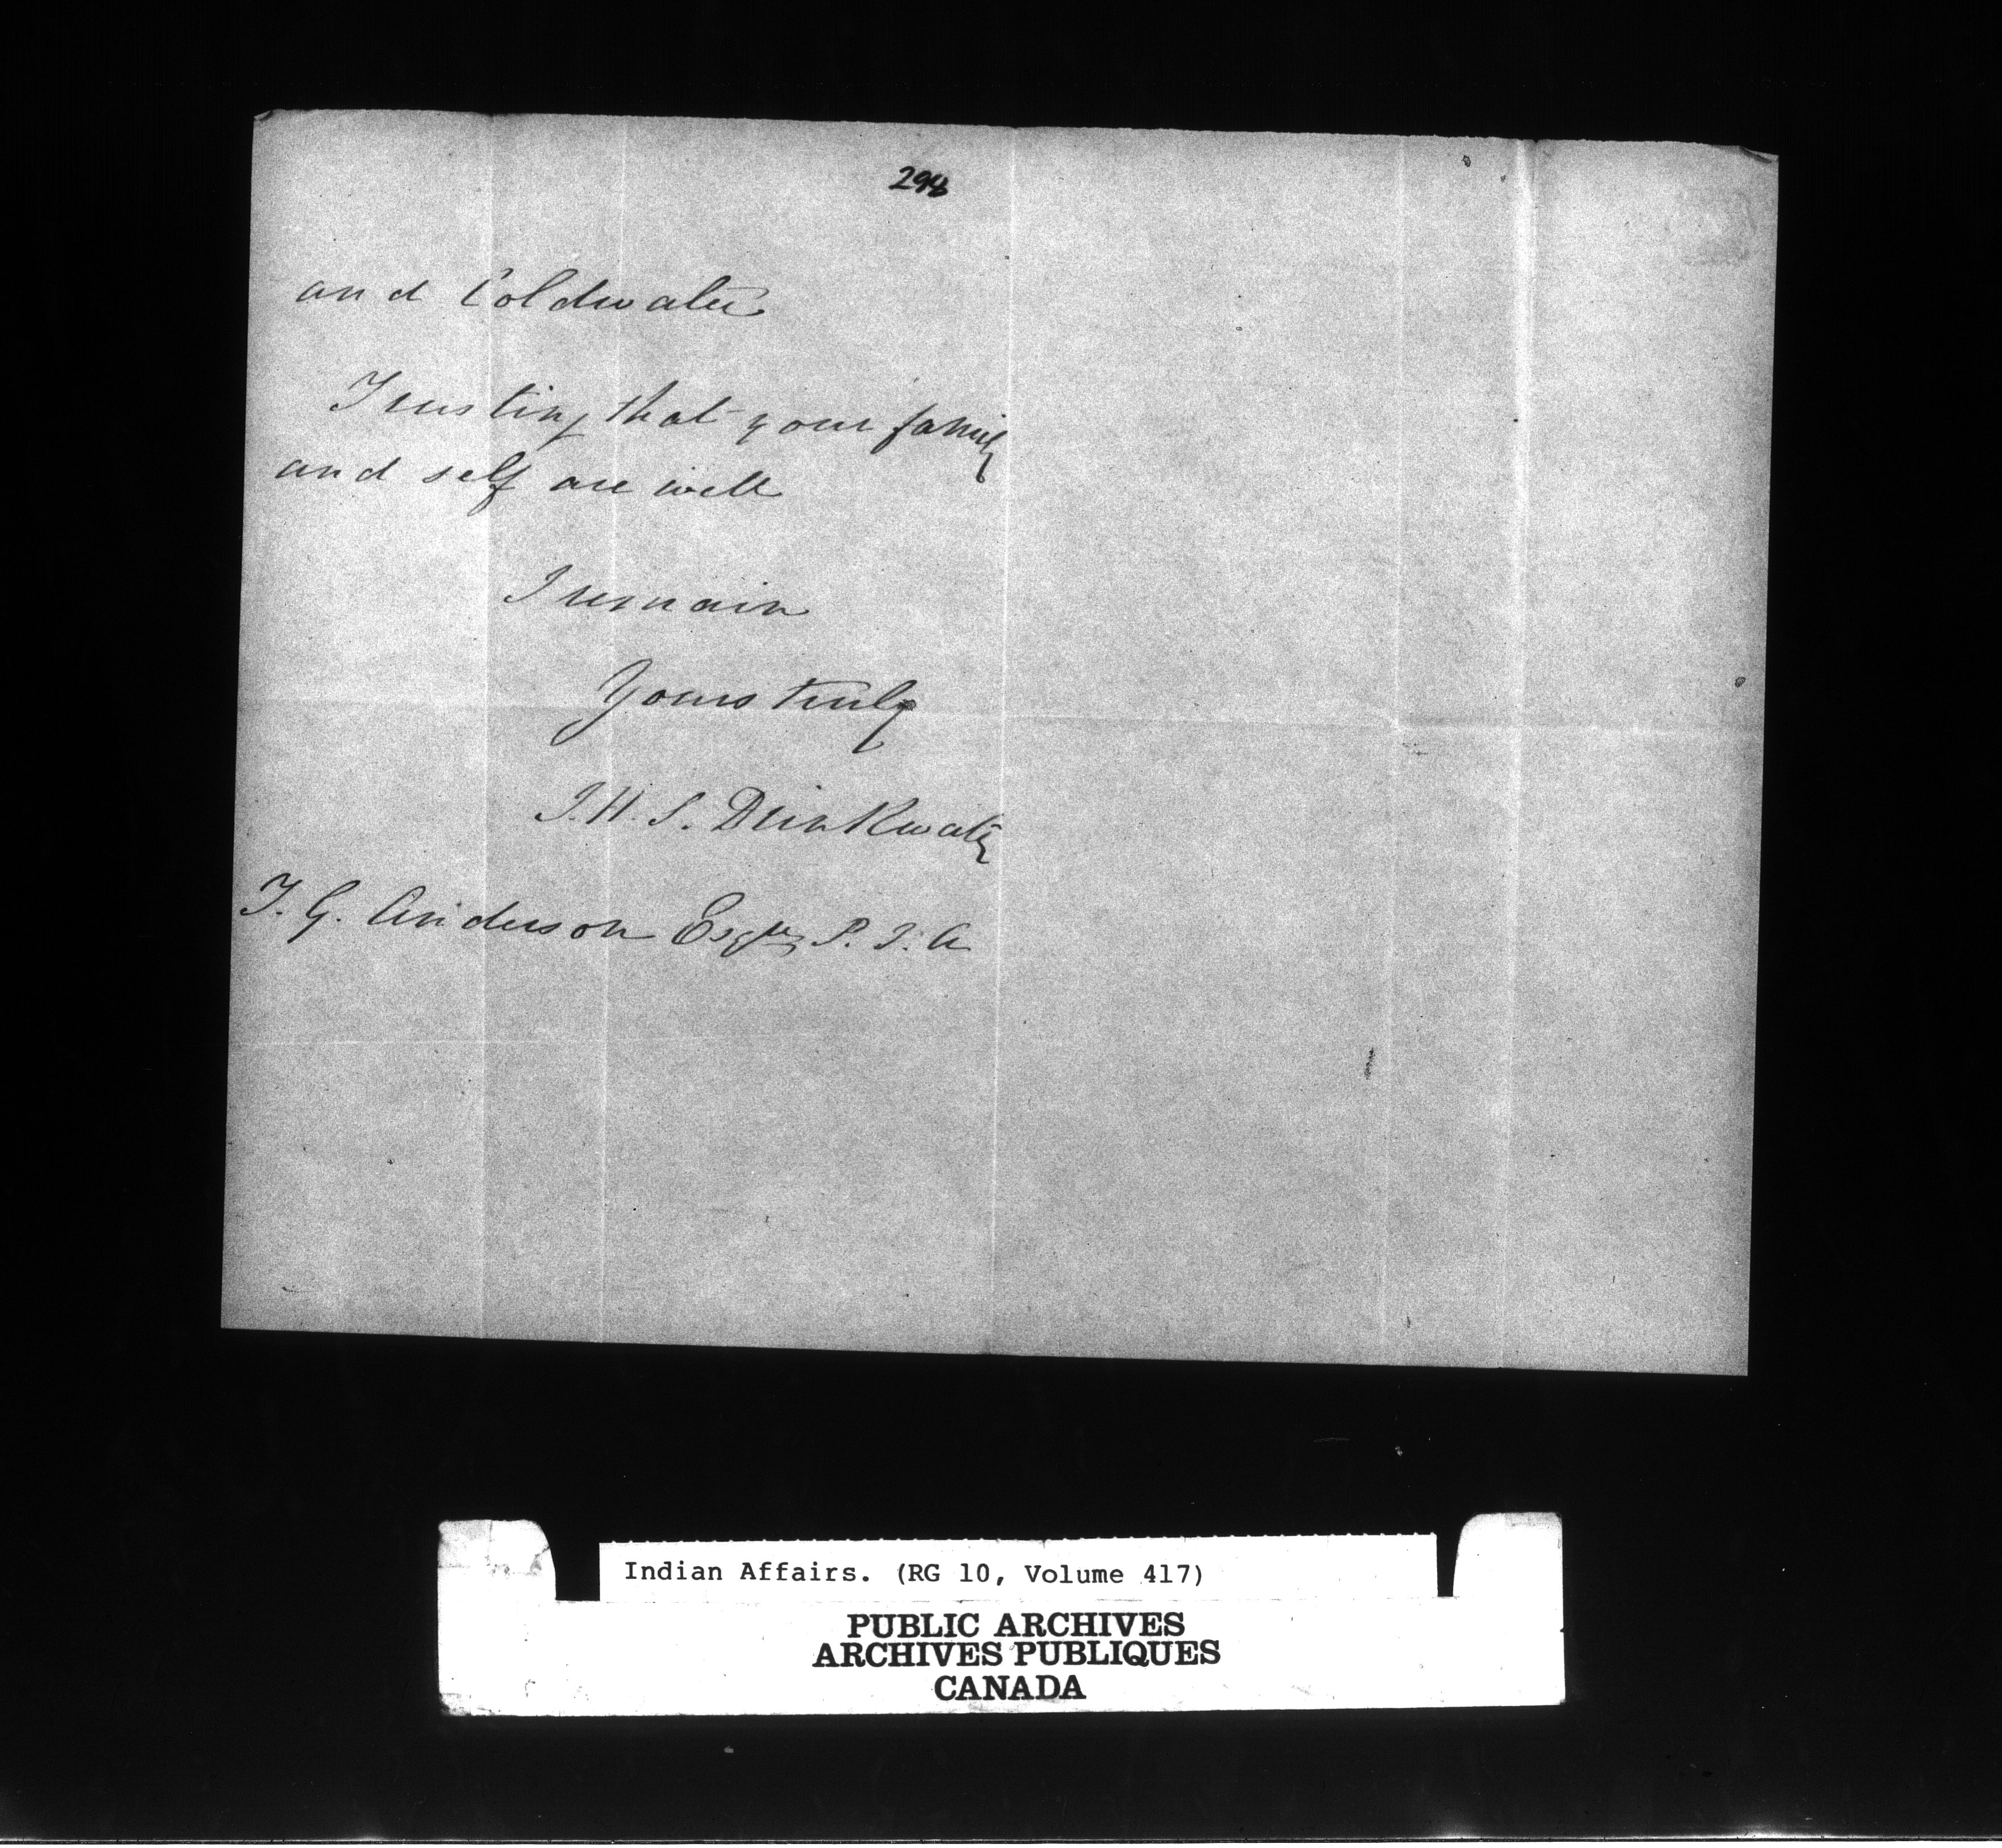 298
and Coldwater
Trusting that your family
and self are well
I remain
Yours truly
J.H.S. Drinkwater
T. G. Anderson Esqre P. T. A
Indian Affairs. (RG 10, Volume 417)
PUBLIC ARCHIVES
ARCHIVES PUBLIQUES
CANADA